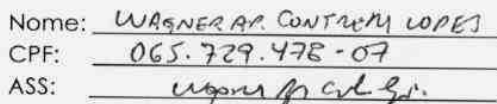 Nome: WAGNER AP. CONTRERA LOPES
CPF: 065.729.478-07
ASS: